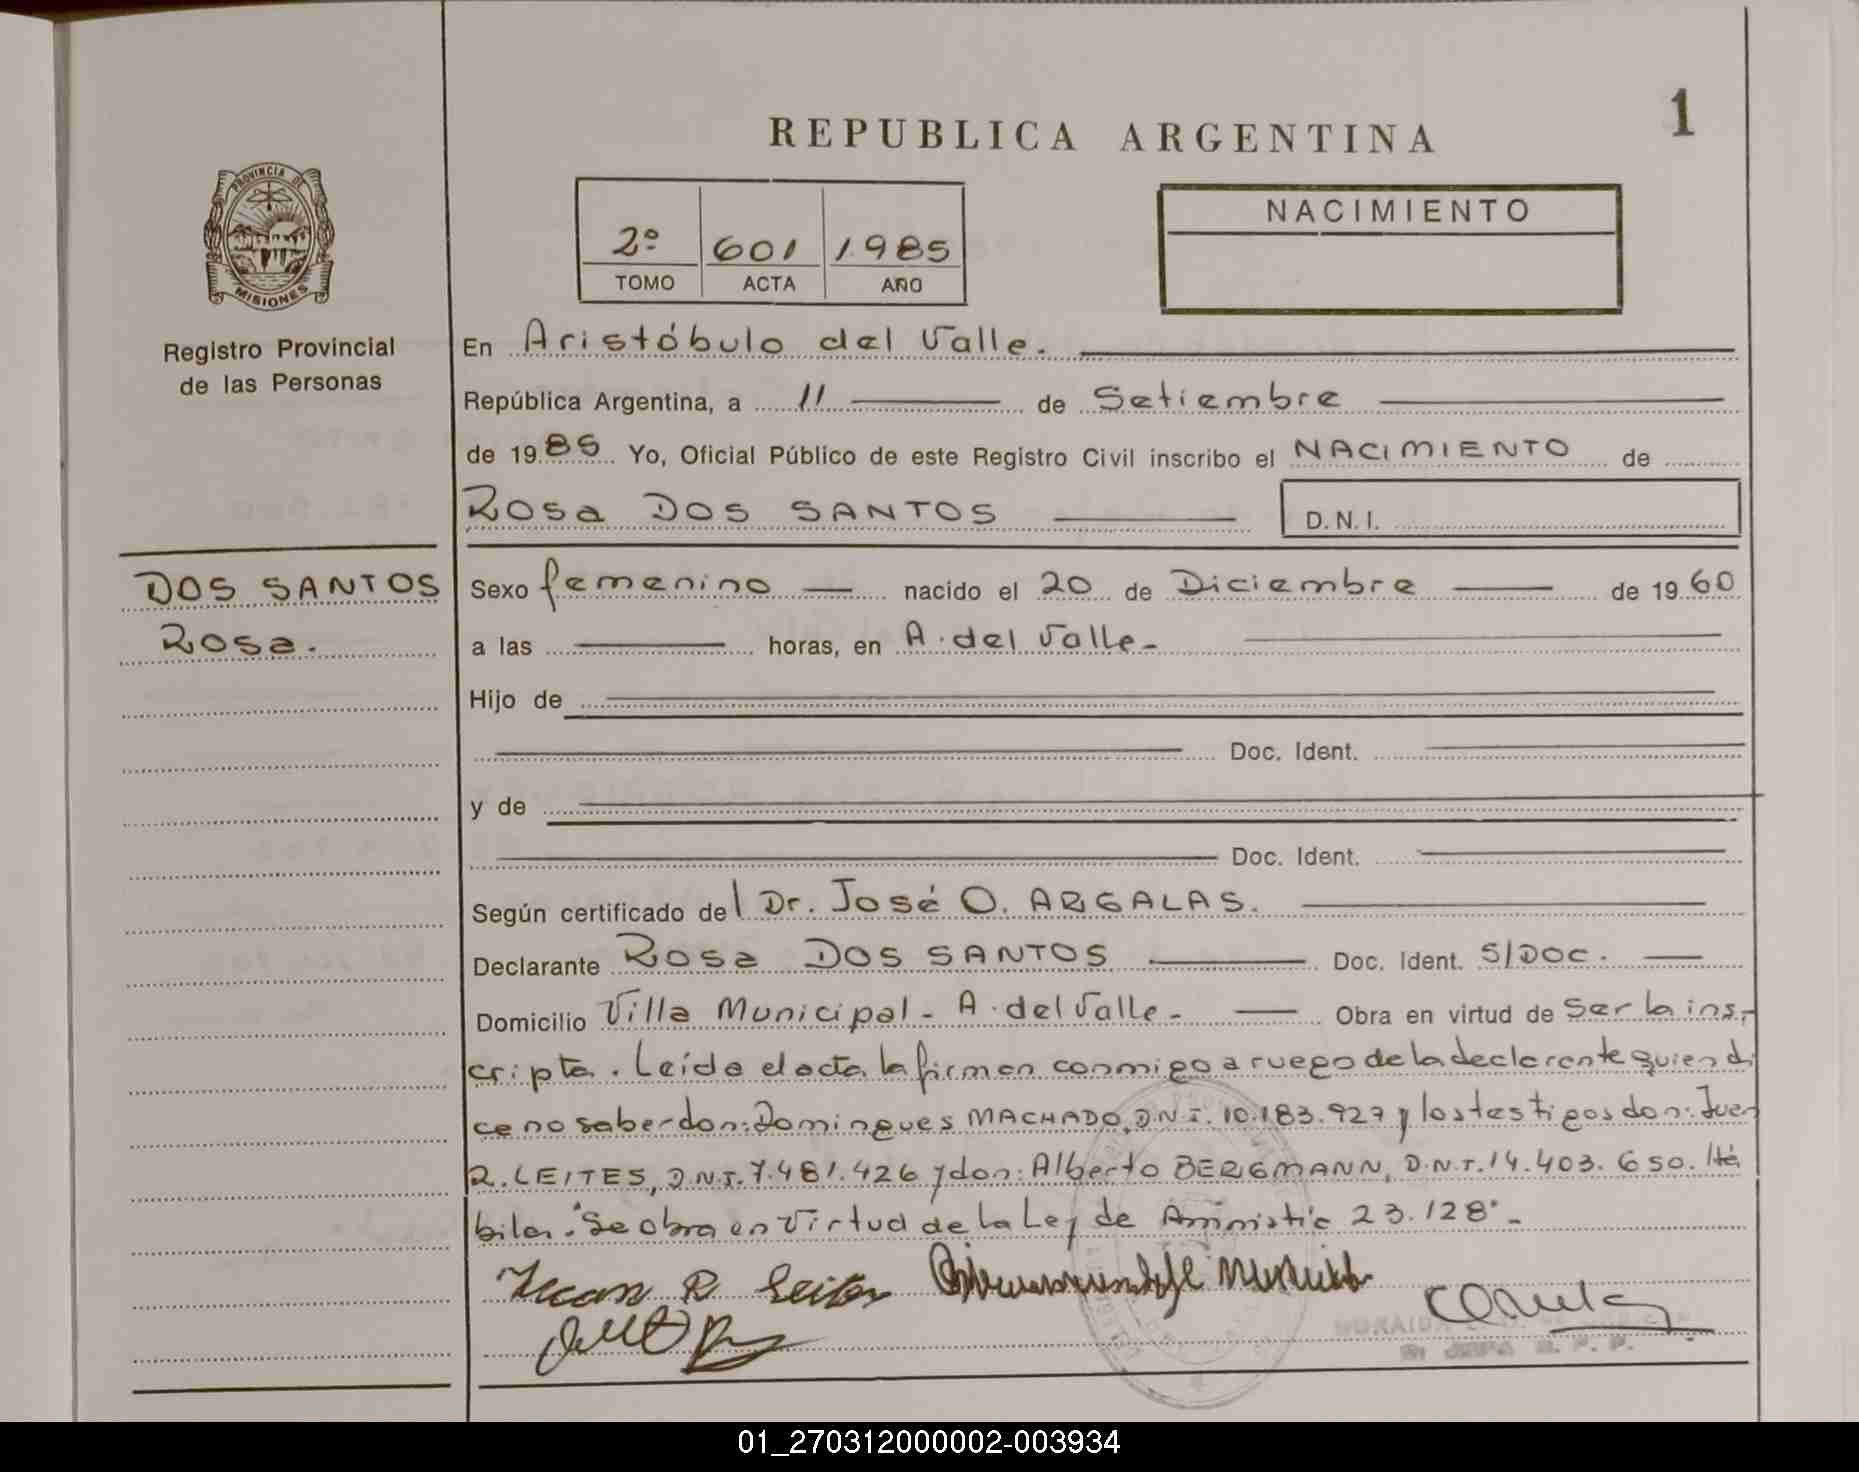 1
REPUBLICA ARGENTINA
PROVINCIA DE
MISIONES
Registro Provincial
de las Personas
2º 601 1985
TOMO ACTA AÑO
NACIMIENTO
En Aristóbulo del Valle.
República Argentina, a 11 de Setiembre
de 1985 Yo, Oficial Público de este Registro Civil inscribo el NACIMIENTO de
Rosa DOS SANTOS D.N.I.
DOS SANTOS
Rosa.
Sexo femenino nacido el 20 de Diciembre de 1960
a las horas, en A. del Valle-
Hijo de
Doc. Ident.
y de
Doc. Ident.
Según certificado del Dr. José O. ARGALAS.
Declarante Rosa DOS SANTOS Doc. Ident. S/DOC.
Domicilio Villa Municipal - A. del Valle- Obra en virtud de Ser la ins-
cripta. Leída el acta la firman conmigo a ruego de la declarante quien di
ce no saber don: Domingues MACHADO, D.N.I. 10.183.927 y los testigos don: Juan
R. LEITES, D.N.I. 7.481.426 y don: Alberto BERGMANN, D.N.I. 14.403.650. Há
biles. "Se obra en Virtud de la Ley de Aminstia 23.128"-
Juan R Leites
01_270312000002-003934